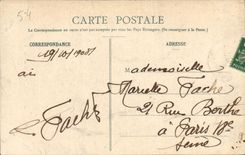 54
CARTE POSTALE
La Correspondance au recto n'est pas acceptée par tous les Pays Étrangers. (Se renseigner à la Poste.)
CORRESPONDANCE
ADRESSE
19/10/1908
Mademoiselle
Marcelle Faché
21 Rue Berthe
à Paris 18e
Seine
ai
Faché